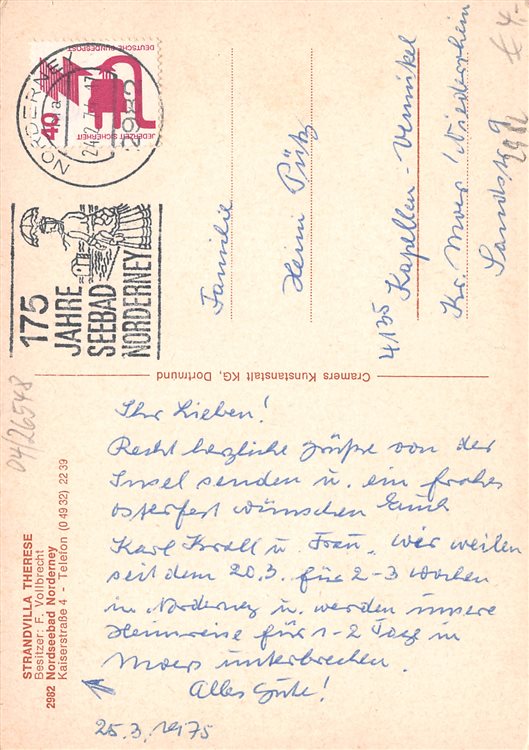 Ihr Lieben!
Recht herzliche Grüße von der
Insel senden u. ein frohes
Osterfest wünschen Euch
Karl Kroll u. Frau. Wir weilen
seit dem 20.3. für 2-3 Wochen
in Norderney u. werden unsere
Heimreise für 1-2 Tage in
Moers unterbrechen.
Alles Gute!
25.3.1975
STRANDVILLA THERESE
Besitzer: F. Vollbrecht
2982 Nordseebad Norderney
Kaiserstraße 4 - Telefon (0 49 32) 22 39
04/26548
Cramers Kunstanstalt KG, Dortmund
175
JAHRE
SEEBAD
NORDERNEY
NORDERNEY
2982
DEUTSCHE BUNDESPOST
40
JEDERZEIT SICHERHEIT
Familie
Heini Pütz
4135 Kapellen-Vennikel
Kr. Moers/Niederrhein
Landstr. 9
2982
€ 4-